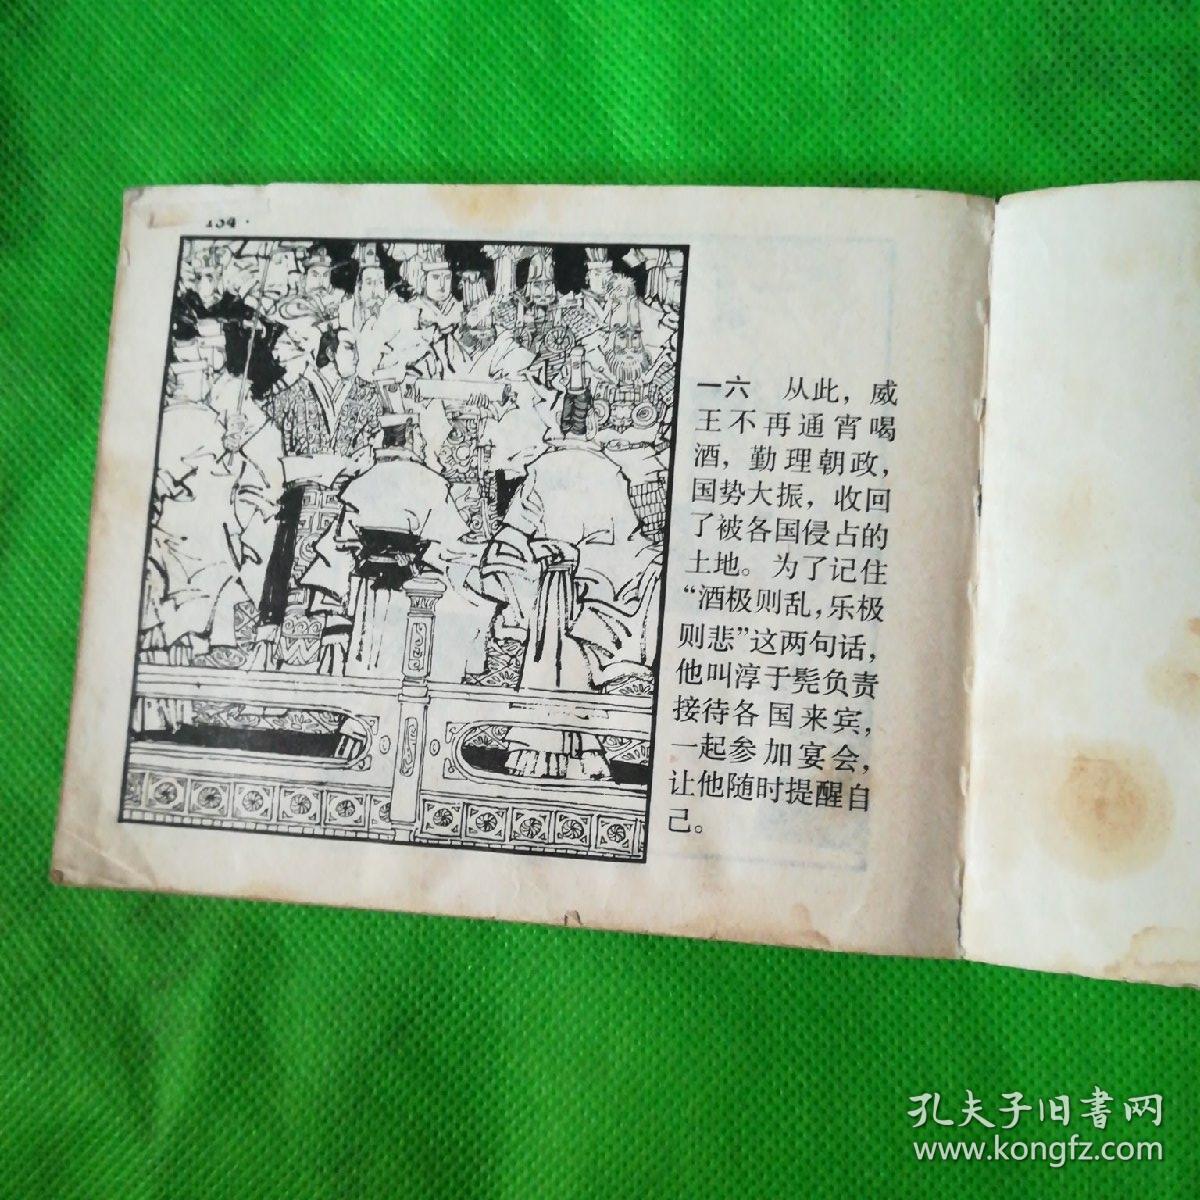 134·
一六　从此，威
王不再通宵喝
酒，勤理朝政，
国势大振，收回
了被各国侵占的
土地。为了记住
“酒极则乱，乐极
则悲”这两句话，
他叫淳于髡负责
接待各国来宾，
一起参加宴会，
让他随时提醒自
己。
孔夫子旧書网
www.kongfz.com